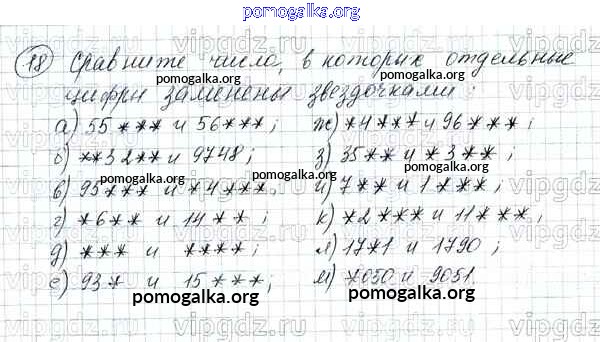 pomogalka.org
18 Сравните числа, в которых отдельные
pomogalka.org pomogalka.org
цифры заменены звездочками:
а) 55*** и 56***; ж) *4*** и 96***;
pomogalka.org pomogalka.org
б) **32** и 9748; з) 35** и *3**;
в) 95*** и *4***; и) 7** и 1***;
pomogalka.org pomogalka.org
г) *6** и 14**; к) *2*** и 11***;
д) *** и ****; л) 17*1 и 1790;
е) 93* и 15***; м) *050 и 9051.
pomogalka.org pomogalka.org
vipgdz.ru vipgdz.ru